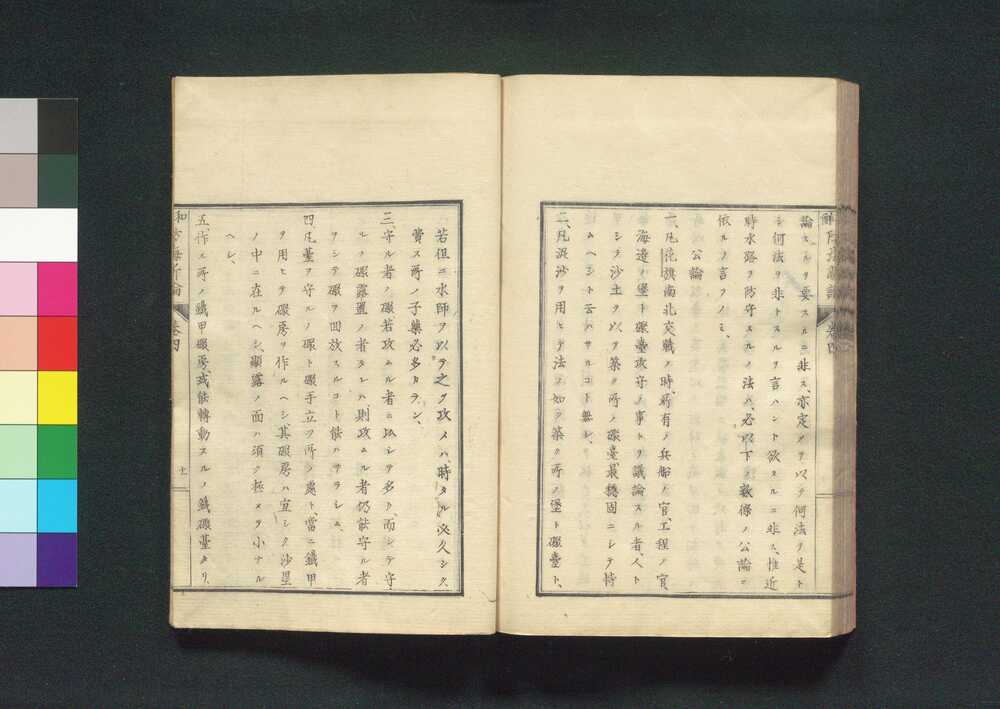 論セルヲ要スルニ非ス、亦定メヲ以テ何法ヲ是ト
シ何法ヲ非トスルヲ言ハント欲スルニ非ス、惟近
時水路ヲ防守スルノ法ハ、必以下ノ数條ノ公論ニ
依ルノ言フノミ、
公論
一、凡花旗南北交戰ノ時、所有ノ兵船ノ官、工程ノ官
海邊ノ堡ト礮臺攻守ノ事トヲ議論スル者、人ト
シテ沙土ヲ以テ築ク所ノ礮臺、最穩固ニシテ恃
ムヘシト云ハサルコト無シ、
二、凡泥沙ヲ用ヒテ法ノ如ク築ク所ノ堡ト礮臺ト、
若但ニ水師ヲ以テ之ヲ攻メハ、時タル必久シク
費ス所ノ子藥必多カラン、
三、守ル者ノ礮若攻ムル者ニ比シテ多ク、而シテ守
ルノ礮露置ノ者タレハ、則攻ムル者仍能守ル者
ヲシテ礮ヲ回放スルコト能ハサラシム、
四、凡臺ヲ守ルノ礮ト礮手立ツ所ノ處ト、當ニ鐵甲
ヲ用ヒテ礮房ヲ作ルヘシ、其礮房ハ宜シク沙壘
ノ中ニ在ルヘシ、顯露ノ面ハ須ク極メテ小ナル
ヘシ、
五、作ス所ノ鐵甲礮房、或能轉動スルノ鐵礮臺タリ、
卷四
十一